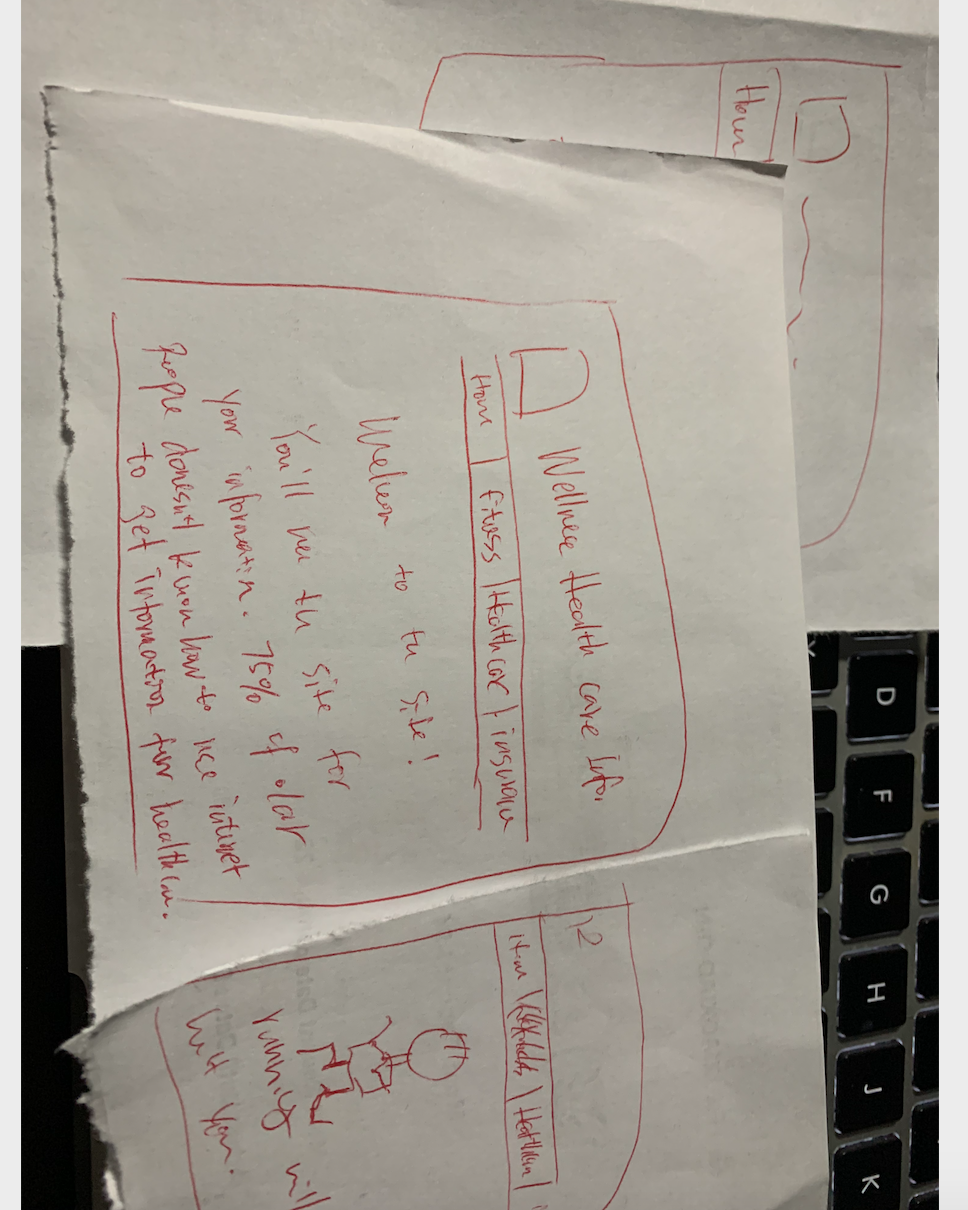 Wellness Health care info.
Home | fitness | Health care | insurance
Welcom to th site!
You'll use th site for
Your information. 75% of olar
People donesn't know how to use internet
to get information for healthcare.
Hom
item
running will
hurt you.
D
F
G
H
J
K